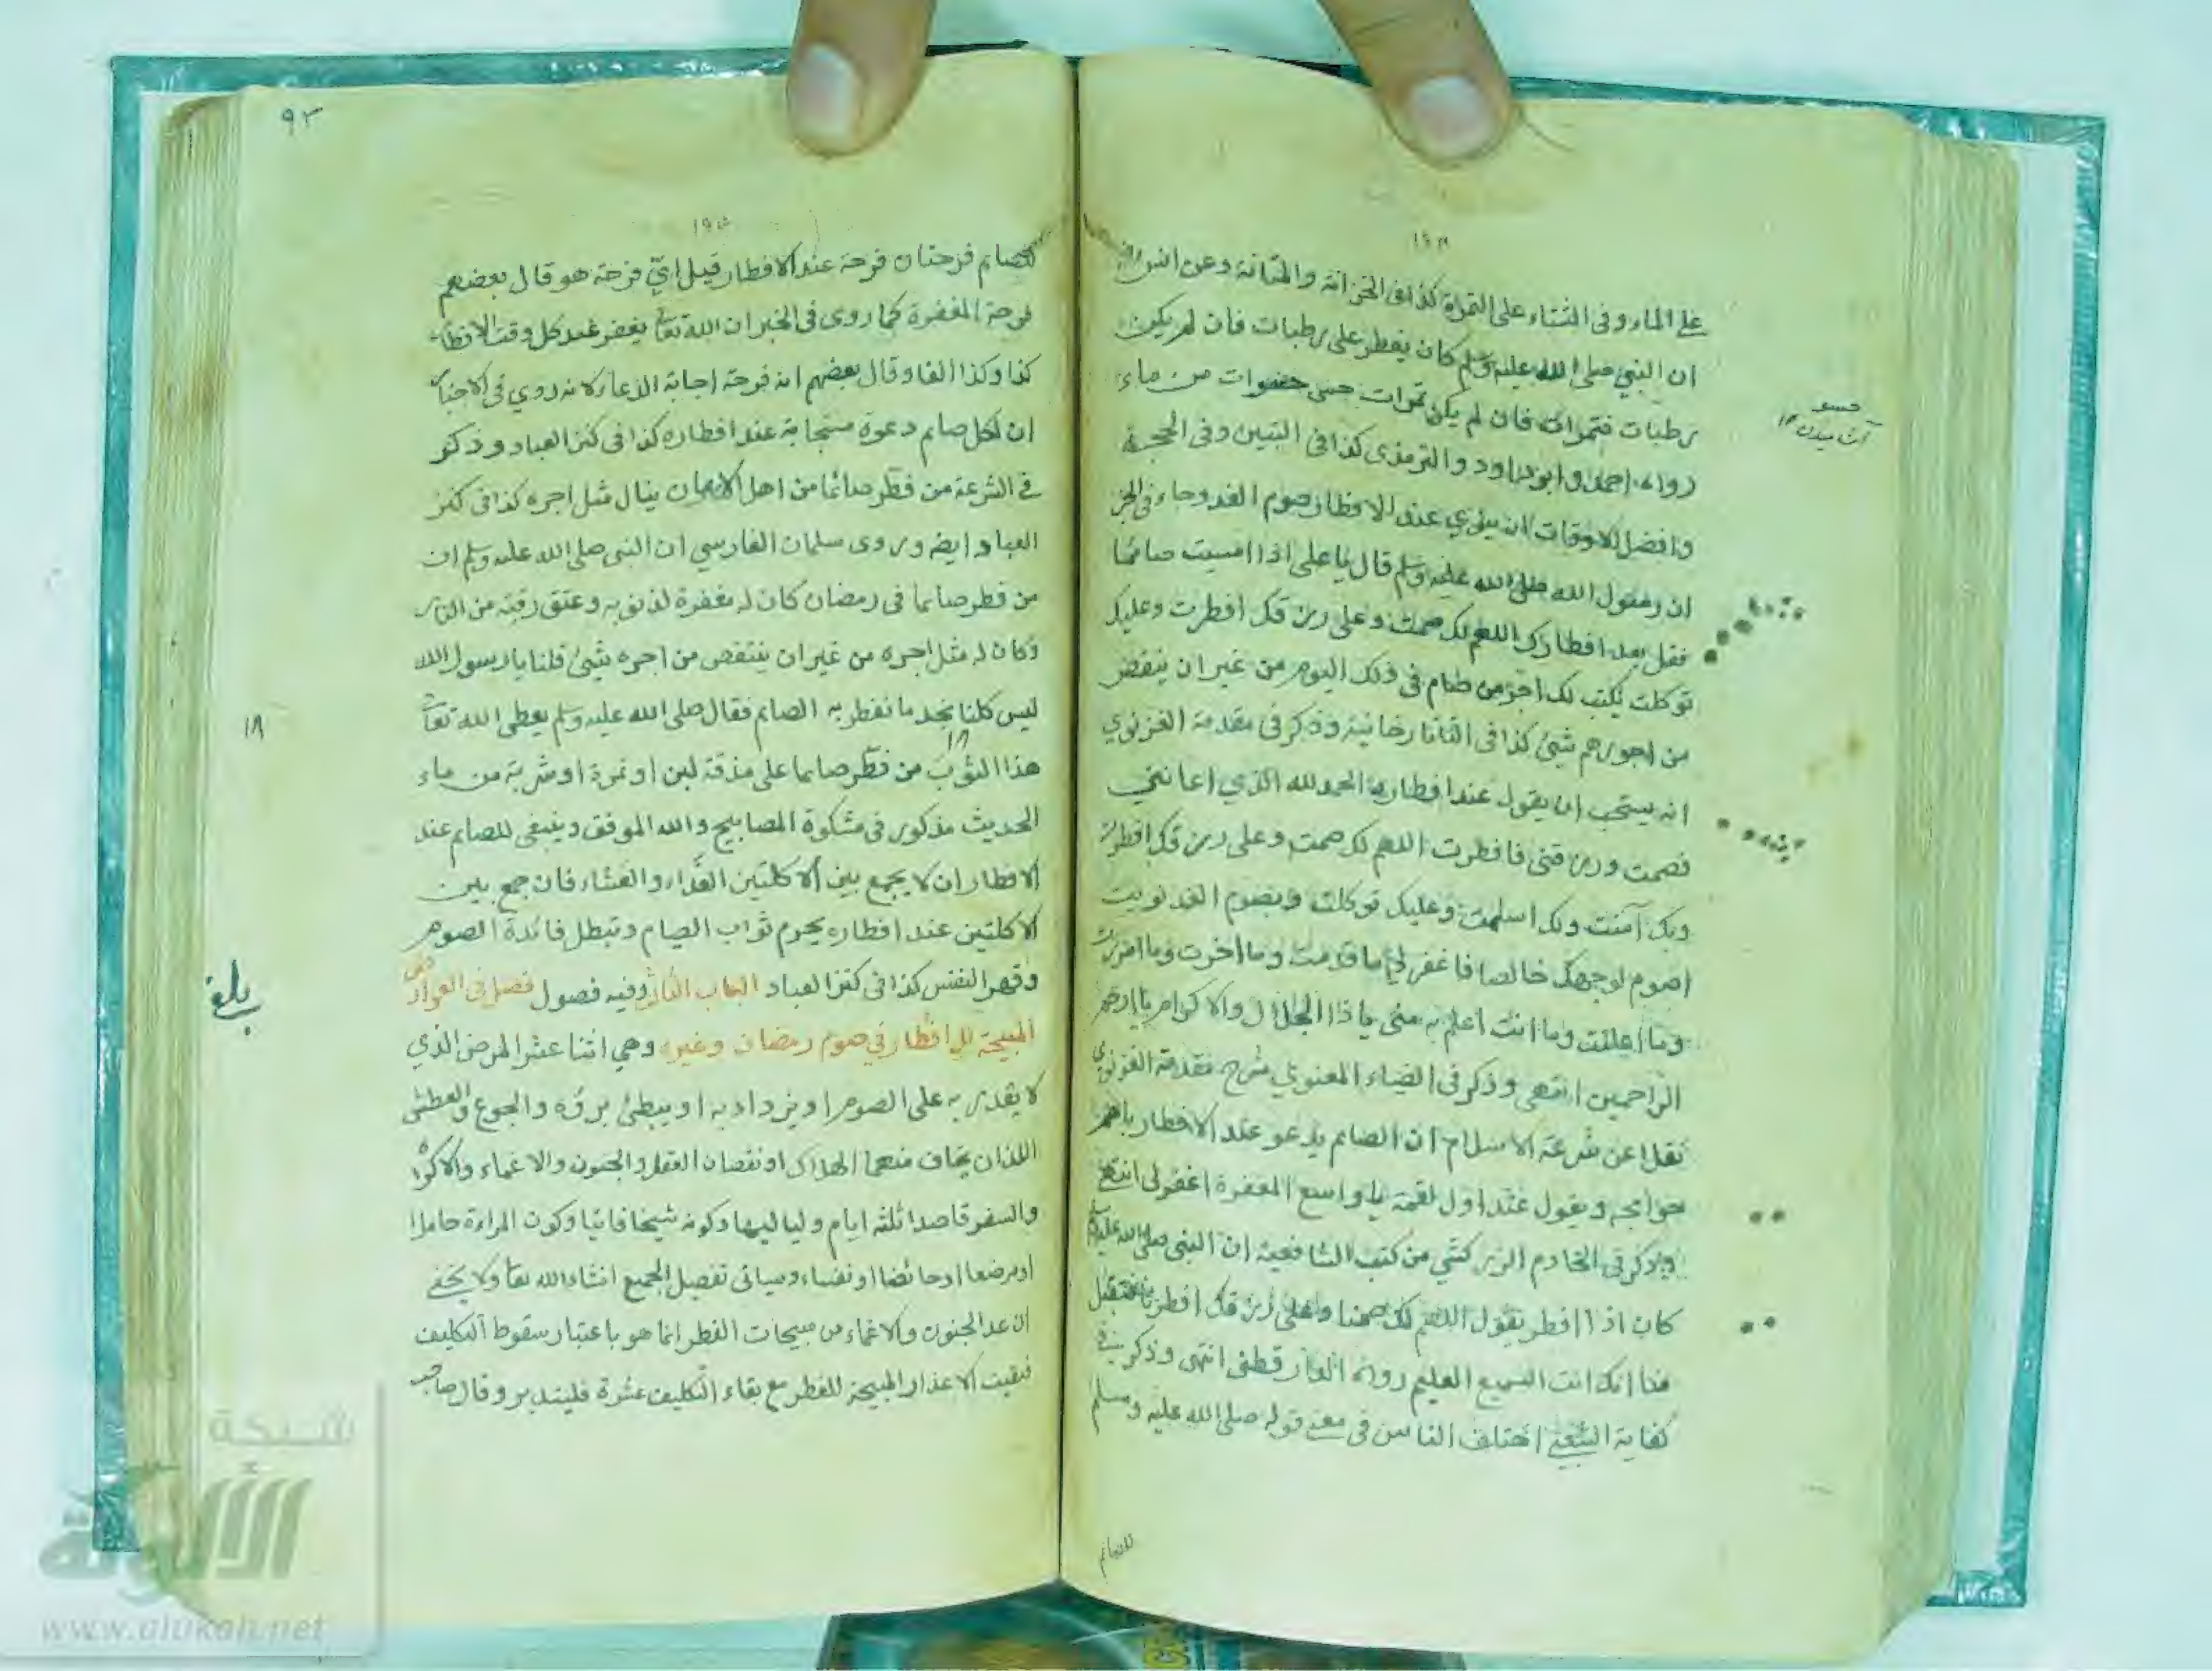 على الماء وفى الشتاء على التمرة كذا فى الخزانة والمتانة وعن انس رض
ان النبي صلى الله عليه وسلم كان يفطر على رطبات فان لم يكن
رطبات فتمرات فان لم يكن تمرات حسى حسوات من ماء
رواه احمد وابو داود والترمذى كذا فى التبين وفى الحجة
وافضل الاوقات ان ينوي عند الافطار صوم الغد وجاء فى الخبر
ان رسول الله صلى الله عليه وسلم قال يا على اذا امسيت صائما
فقل بعد افطارك اللهم لك صمت وعلى رزقك افطرت وعليك
توكلت يكتب لك اجر من صام فى ذلك اليوم من غير ان ينقص
من اجورهم شئ كذا فى التاتارخانية وذكر فى مقدمة الغزنوي
انه يستحب ان يقول عند افطاره الحمد لله الذي اعانني
فصمت ورزقنى فافطرت اللهم لك صمت وعلى رزقك افطرت
وبك آمنت ولك اسلمت وعليك توكلت وبصوم الغد نويت
اصوم لوجهك خالصا فاغفر لي ما قدمت وما اخرت وما اسررت
وما اعلنت وما انت اعلم به منى يا ذا الجلال والاكرام يا ارحم
الراحمين انتهى وذكر فى الضياء المعنوي شرح مقدمة الغزنوي
نقلا عن شرعة الاسلام ان الصائم يدعو عند الافطار باهم
حوائجه ويقول عند اول لقمة يا واسع المغفرة اغفر لى انتهى
وذكر فى الخادم الزركشي من كتب الشافعية ان النبى صلى الله عليه وسلم
كان اذا افطر يقول اللهم لك صمنا وعلى رزقك افطرنا فتقبل
منا انك انت السميع العليم رواه الدار قطنى انتهى وذكر فى
كفاية الشعبي اختلف الناس فى معنى قوله صلى الله عليه وسلم
للصائم
حسو
آشاميدن ١٢
٩٢
١٩٥
للصايم فرحتان فرحة عند الافطار قيل ايّ فرحة هو قال بعضهم
فرحة المغفرة كما روى فى الخبر ان الله تعالى يغفر عند كل وقت الافطار
كذا وكذا الفا وقال بعضهم انه فرحة اجابة الدعاء لانه روي فى الاخبار
ان لكل صايم دعوة مستجابة عند افطاره كذا فى كنز العباد وذكر
فى الشرعة من فطر صائما من اهل الايمان ينال مثل اجره كذا فى كنز
العباد ايضا وروى سلمان الفارسي ان النبى صلى الله عليه وسلم ان
من فطر صايما فى رمضان كان له مغفرة لذنوبه وعتق رقبته من النار
وكان له مثل اجره من غير ان ينتقص من اجره شئ قلنا يا رسول الله
ليس كلنا يجد ما نفطر به الصايم فقال صلى الله عليه وسلم يعطى الله تعالى
هذا الثوب من فطر صايما على مذقة لبن او تمرة او شربة من ماء
الحديث مذكور فى مشكوة المصابيح والله الموفق وينبغى للصايم عند
الافطار ان لا يجمع بين الاكلتين الغداء والعشاء فان جمع بين
الاكلتين عند افطاره يحرم ثواب الصيام وتبطل فائدة الصوم
وقهر النفس كذا فى كنز العباد الباب الثالث وفيه فصول فصل فى العوارض
المبيحة للافطار في صوم رمضان وغيره وهي اثنا عشر المرض الذي
لا يقدر به على الصوم او يزداد به او يبطئ برؤه والجوع والعطش
اللذان يخاف منهما الهلاك او نقصان العقل والجنون والاغماء والاكراه
والسفر قاصدا ثلثه ايام ولياليها وكونه شيخا فانيا وكون المراءة حاملا
او مرضعا او حائضا او نفساء وسياتى تفصيل الجميع انشاء الله تعالى ولا يخفى
ان عد الجنون والاغماء من مبيحات الفطر انما هو باعتبار سقوط التكليف
فبقيت الاعذار المبيحة للفطر مع بقاء التكليف عشرة فليتدبر وقال صاحب
١٨
بلغ
شبكة
الألوكة
www.alukah.net